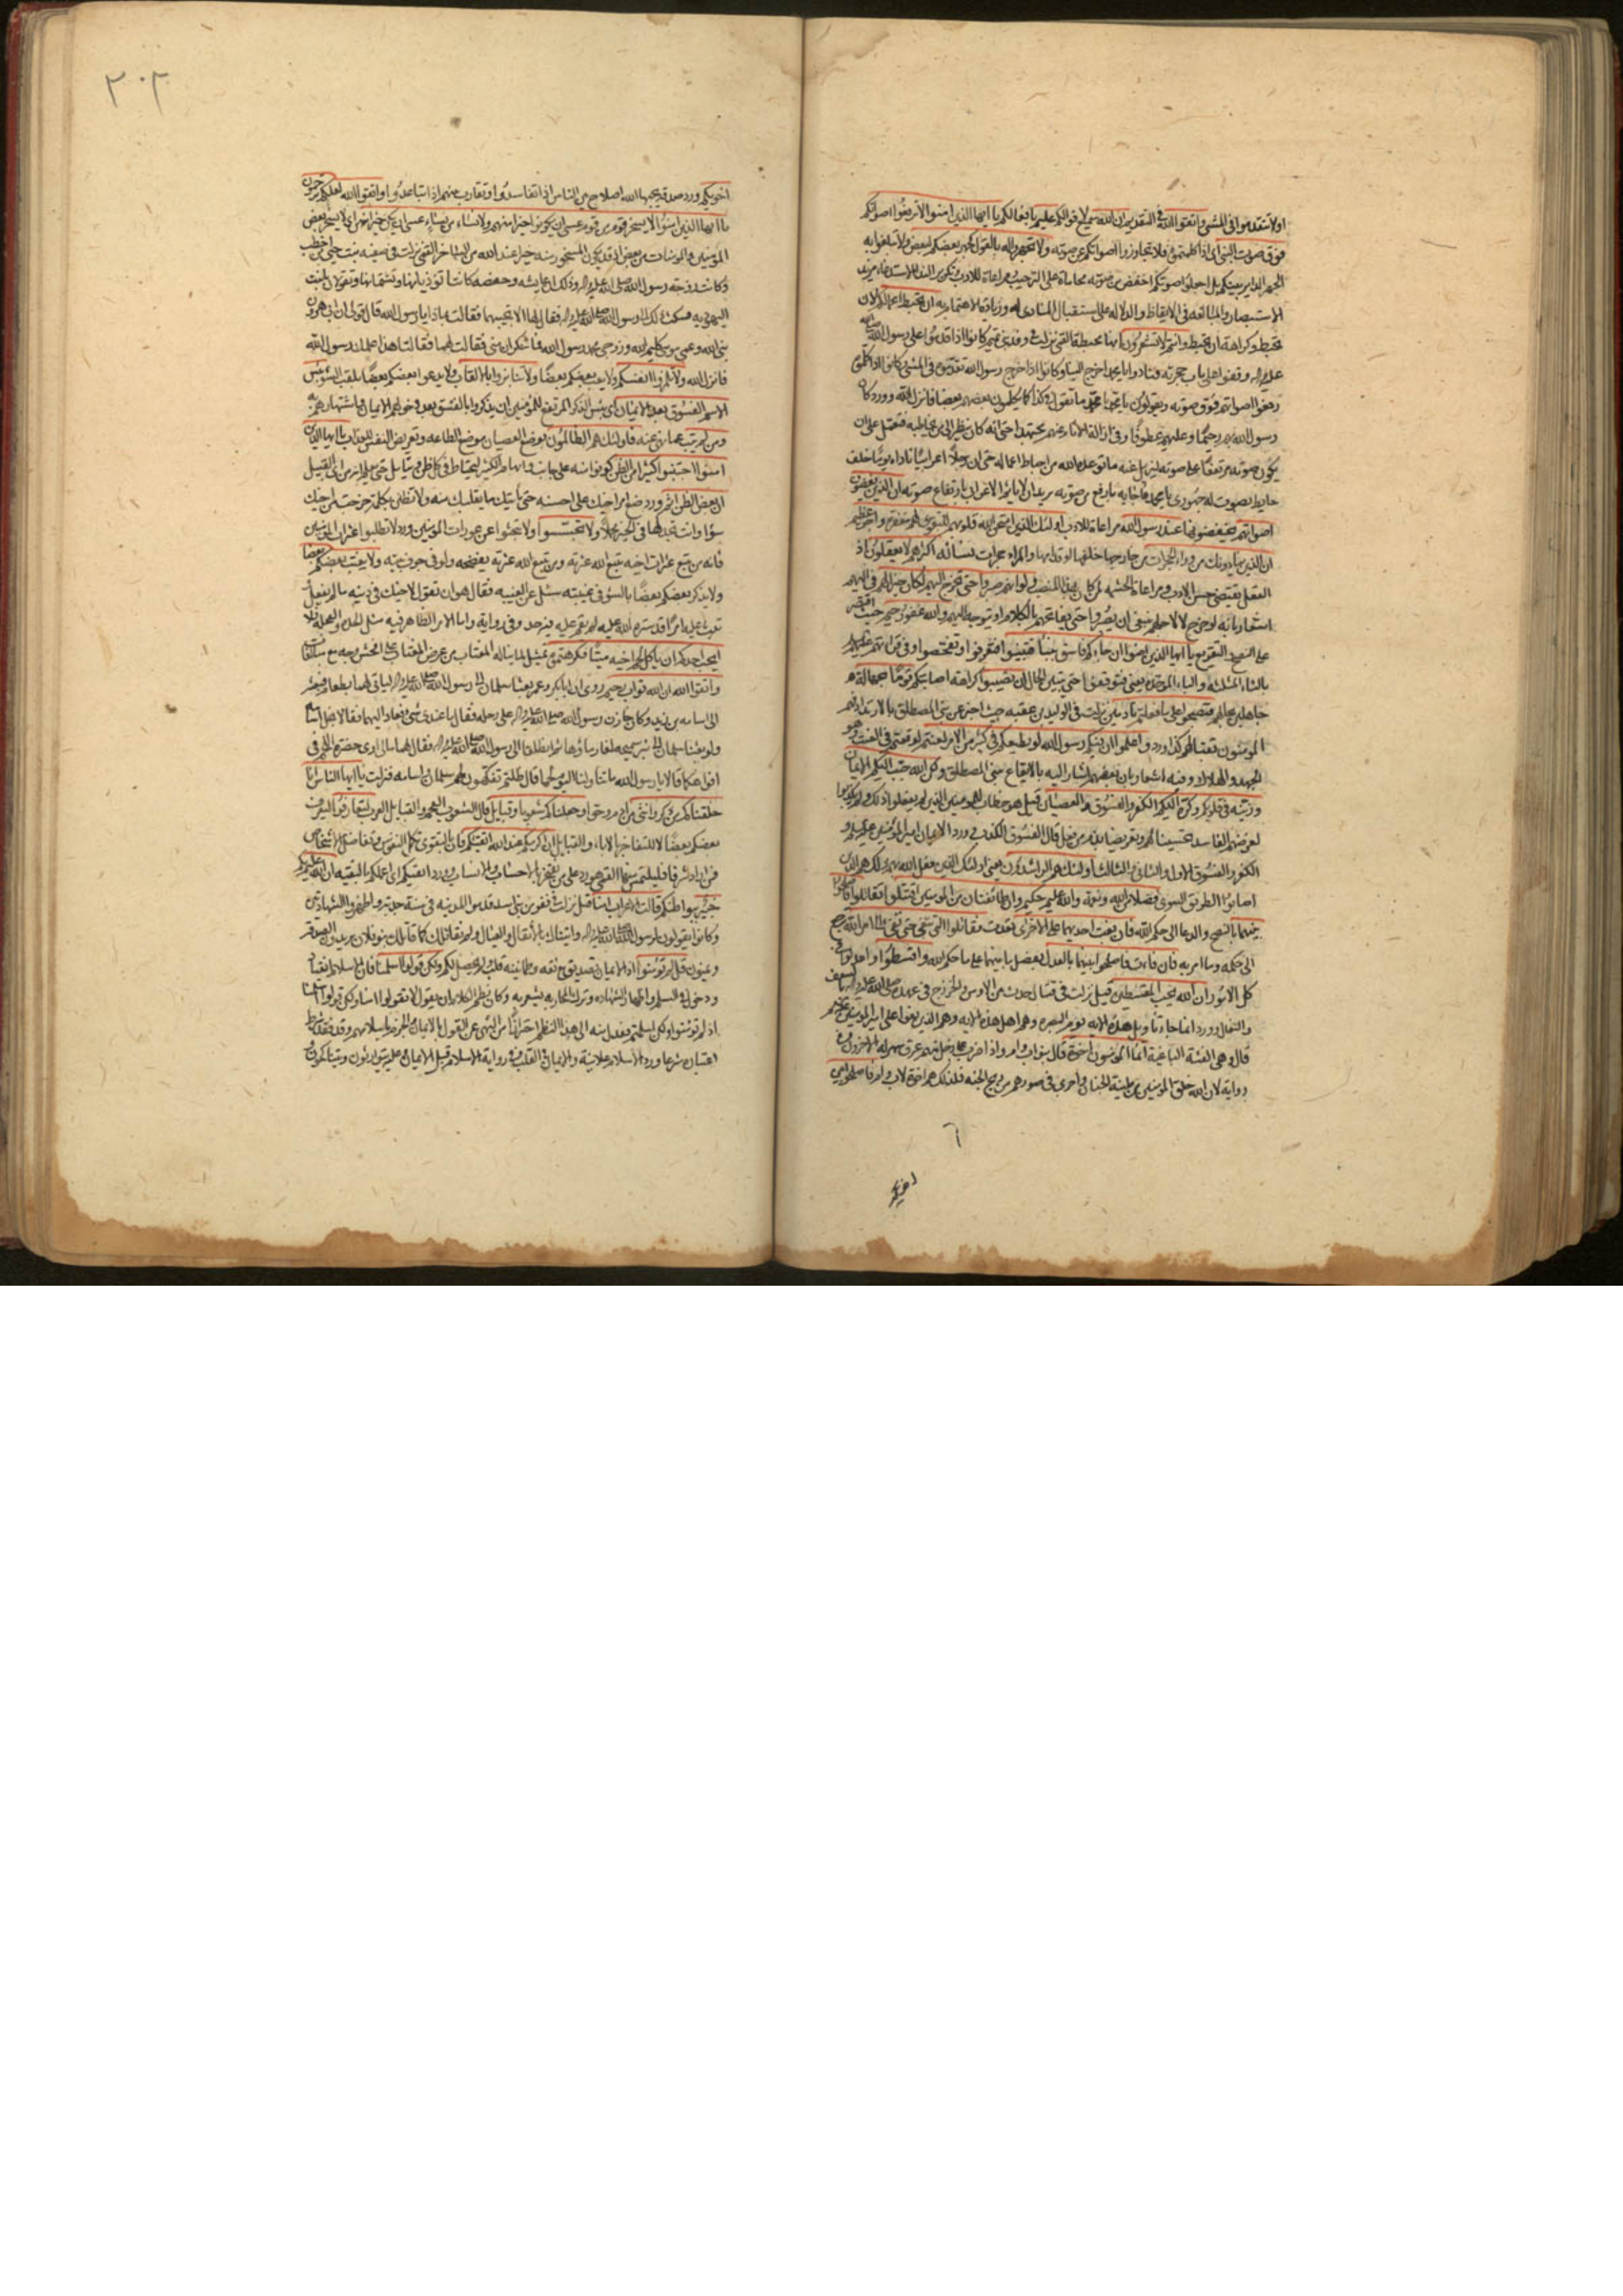 او لا تتقدموا في المشي واتقوا الله في التقديم ان الله سميع لاقوالكم عليم بافعالكم يا ايها الذين امنوا لا ترفعوا اصواتكم
فوق صوت النبي اي اذا كلمتموه فلا تجاوزوا اصواتكم عن صوته ولا تجهروا له بالقول كجهر بعضكم لبعض ولا تبلغوا به
الجهر الداير بينكم بل اجعلوا صوتكم اخفض من صوته محاماة على الترحيب ومراعاة للادب وتكرير النداء لاستدعاء مزيد
الاستبصار والمبالغة في الايقاظ والدلالة على استقبال المنادى له وزيادة الاهتمام به ان تحبط اعمالكم لان
تحبط او كراهة ان تحبط وانتم لا تشعرون انها محبطة القمي نزلت في وفد بني تميم كانوا اذا قدموا على رسول الله صلى الله
عليه واله وقفوا على باب حجرته فنادوا يا محمد اخرج الينا وكانوا اذا خرج رسول الله تقدموه في المشي وكانوا اذا كلموه
رفعوا اصواتهم فوق صوته ويقولون يا محمد يا محمد ما تقول في كذا كما يكلمون بعضهم بعضا فانزل الله وورد كان
رسول الله بهم رحيما وعليهم عطوفا وفي ازالة الاثام عنهم مجتهدا حتى انه كان ينظر الى من يخاطبه فتعمل على ان
يكون صوته مرتفعا على صوته ليزيل عنه ما توعده الله من احباط اعماله حتى ان رجلا اعرابيا ناداه يوما خلف
حايط بصوت له جهوري يا محمد فاجابه بارفع من صوته يريد ان لا ياثم الاعرابي بارتفاع صوته ان الذين يغضون
اصواتهم يخفضونها عند رسول الله مراعاة للادب اولئك الذين امتحن الله قلوبهم للتقوى لهم مغفرة واجر عظيم
ان الذين ينادونك من وراء الحجرات من خارجها خلفها او قدامها والمراد حجرات نسائه اكثرهم لا يعقلون اذ
العقل يقتضي حسن الادب ومراعاة الحشمة لمن كان بهذا المنصب ولو انهم صبروا حتى تخرج اليهم لكان خيرا لهم في اليهم
اشعار بانه لو خرج لا لاجلهم ينبغي ان يصبروا حتى يفاتحهم بالكلام او يتوجه اليهم والله غفور رحيم حيث اقتصر
على النصح والتقريع يا ايها الذين امنوا ان جاءكم فاسق بنبا فتبينوا فتعرفوا وتفحصوا وفي قراءتهم عليهم
بالثاء المثلثة والباء الموحدة يعني فتوقفوا حتى يتبين الحال ان تصيبوا كراهة اصابتكم قوما بجهالة
جاهلين بحالهم فتصبحوا على ما فعلتم نادمين نزلت في الوليد بن عقبة حيث اخبر عن بني المصطلق بالارتداد فهم
المؤمنون بقتالهم كذا ورد واعلموا ان فيكم رسول الله لو يطيعكم في كثير من الامر لعنتم لوقعتم في العنت وهو
الجهد والهلاك وفيه اشعار بان بعضهم اشار اليه بالايقاع ببني المصطلق ولكن الله حبب اليكم الايمان
وزينه في قلوبكم وكره اليكم الكفر والفسوق والعصيان قيل هو خطاب للمؤمنين الذين لم يفعلوا ذلك ولم يكذبوا
لغرضهم الفاسد تحسينا لهم وتعريضا بذم من فعل قال الفسوق الكذب وورد الايمان امير المؤمنين عليه السلام و
الكفر والفسوق الاول والثاني والثالث اولئك هم الراشدون يعني اولئك الذين فعل الله بهم ذلك هم الذين
اصابوا الطريق السوي فضلا من الله ونعمة والله عليم حكيم وان طائفتان من المؤمنين اقتتلوا تقاتلوا فاصلحوا
بينهما بالنصح والدعا الى حكم الله فان بغت احديهما على الاخرى تعدت فقاتلوا التي تبغي حتى تفئ الى امر الله ترجع
الى حكمه وما امر به فان فاءت فاصلحوا بينهما بالعدل بفصل ما بينهما على ما حكم الله واقسطوا واعدلوا في
كل الامور ان الله يحب المقسطين قيل نزلت في قتال حدث بين الاوس والخزرج في عهده صلى الله عليه واله بالسعف
والنعال وورد انما جاء تاويل هذه الاية يوم البصرة وهم اهل هذه الاية وهم الذين بغوا على امير المؤمنين عليه السلم
قال وهي الفئة الباغية انما المؤمنون اخوة قال بنو اب وام واذا ضرب على رجل منهم عرق سهر له الاخرون وفي
رواية لان الله خلق المؤمنين من طينة الجنان واجرى في صورهم من ريح الجنة فلذلك هم اخوة لاب وام فاصلحوا بين
٦
اخويكم
٣٠٢
اخويكم وورد صدقة يحبها الله اصلاح بين الناس اذا تفاسدوا وتقارب بينهم اذا تباعدوا واتقوا الله لعلكم ترحمون
يا ايها الذين امنوا لا يسخر قوم من قوم عسى ان يكونوا خيرا منهم ولا نساء من نساء عسى ان يكن خيرا منهن اي لا يسخر بعض
المؤمنين والمؤمنات من بعض اذ قد يكون المسخور منه خيرا عند الله من الساخر القمي نزلت في صفية بنت حيي بن اخطب
وكانت زوجة رسول الله صلى الله عليه واله وذلك ان عايشة وحفصة كانتا تؤذيانها وتشتمانها وتقولان لها يا بنت
اليهودية فشكت ذلك الى رسول الله صلى الله عليه واله فقال لها الا تجيبيهما فقالت بماذا يا رسول الله قال قولي ان ابي هرون
نبي الله وعمي موسى كليم الله وزوجي محمد رسول الله فما تنكران مني فقالت لهما فقالتا هذا علمك رسول الله
فانزل الله ولا تلمزوا انفسكم ولا يعب بعضكم بعضا ولا تنابزوا بالالقاب ولا يدعو بعضكم بعضا بلقب السوء بئس
الاسم الفسوق بعد الايمان اي بئس الذكر المرتفع للمؤمنين ان يذكروا بالفسق بعد دخولهم الايمان واشتهارهم به
ومن لم يتب عما نهي عنه فاولئك هم الظالمون بوضع العصيان موضع الطاعة وتعريض النفس للعذاب يا ايها الذين
امنوا اجتنبوا كثيرا من الظن كونوا منه على جانب وابهام الكثير ليحتاط في كل ظن ويتامل حتى يعلم انه من اي القبيل
ان بعض الظن اثم وورد ضع امر اخيك على احسنه حتى ياتيك ما يقلبك منه ولا تظنن بكلمة خرجت من اخيك
سوءا وانت تجد لها في الخير محملا ولا تجسسوا ولا تبحثوا عن عورات المؤمنين وورد لا تطلبوا عثرات المؤمنين
فانه من تتبع عثرات اخيه تتبع الله عثرته ومن تتبع الله عثرته يفضحه ولو في جوف بيته ولا يغتب بعضكم بعضا
ولا يذكر بعضكم بعضا بالسوء في غيبته سئل عن الغيبة فقال هو ان تقول لاخيك في دينه ما لم يفعل و
تبث عليه امرا قد ستره الله عليه لم يقم عليه فيه حد وفي رواية واما الامر الظاهر فيه مثل الحدة والعجلة فلا
ايحب احدكم ان ياكل لحم اخيه ميتا فكرهتموه تمثيل لما يناله المغتاب من عرض المغتاب على افحش وجه مع مبالغات
واتقوا الله ان الله تواب رحيم روي ان ابا بكر وعمر بعثا سلمان الى رسول الله صلى الله عليه واله لياتي لهما بطعام فبعثه
الى اسامة بن زيد وكان خازن رسول الله صلى الله عليه واله على رحله فقال ما عندي شئ فعاد اليهما فقالا بخل اسامة
ولو بعثنا سلمان الى بئر سميحة لغار ماؤها ثم انطلقا الى رسول الله صلى الله عليه واله فقال لهما ما لي ارى حضرة اللحم في
افواهكما قالا يا رسول الله ما تناولنا اليوم لحما قال ظللتم تفكهون لحم سلمان واسامة فنزلت يا ايها الناس انا
خلقناكم من ذكر وانثى من ادم وحوى وجعلناكم شعوبا وقبايل قال الشعوب العجم والقبايل العرب لتعارفوا ليعرف
بعضكم بعضا لا للتفاخر بالاباء والقبايل ان اكرمكم عند الله اتقيكم فان بالتقوى تكمل النفوس وتتفاضل الاشخاص
فمن اراد شرفا فليلتمس منها القمي هو رد على من يفتخر بالاحساب والانساب وورد اتقيكم اي اعملكم بالتقية ان الله عليم بكم
خبير ببواطنكم قالت الاعراب امنا قيل نزلت في نفر من بني اسد قدموا المدينة في سنة جدبة واظهروا الشهادتين
وكانوا يقولون لرسول الله صلى الله عليه واله اتيناك بالاثقال والعيال ولم نقاتلك كما قاتلك بنو فلان يريدون الصدقة
ويمنون قل لم تؤمنوا اذ الايمان تصديق مع ثقة وطمانينة قلب ولم يحصل لكم ولكن قولوا اسلمنا فان الاسلام انقياد
ودخول في السلم واظهار الشهادة وترك المحاربة يشعر به وكان نظم الكلام ان يقول لا تقولوا امنا ولكن قولوا اسلمنا
اذ لم تؤمنوا ولكن اسلمتم فعدل منه الى هذا النظم احترازا من النهي عن القول بالايمان والجزم باسلامهم وقد فقد شرط
اعتباره شرعا وورد الاسلام علانية والايمان في القلب وفي رواية الاسلام قبل الايمان وعليه يتوارثون ويتناكحون و